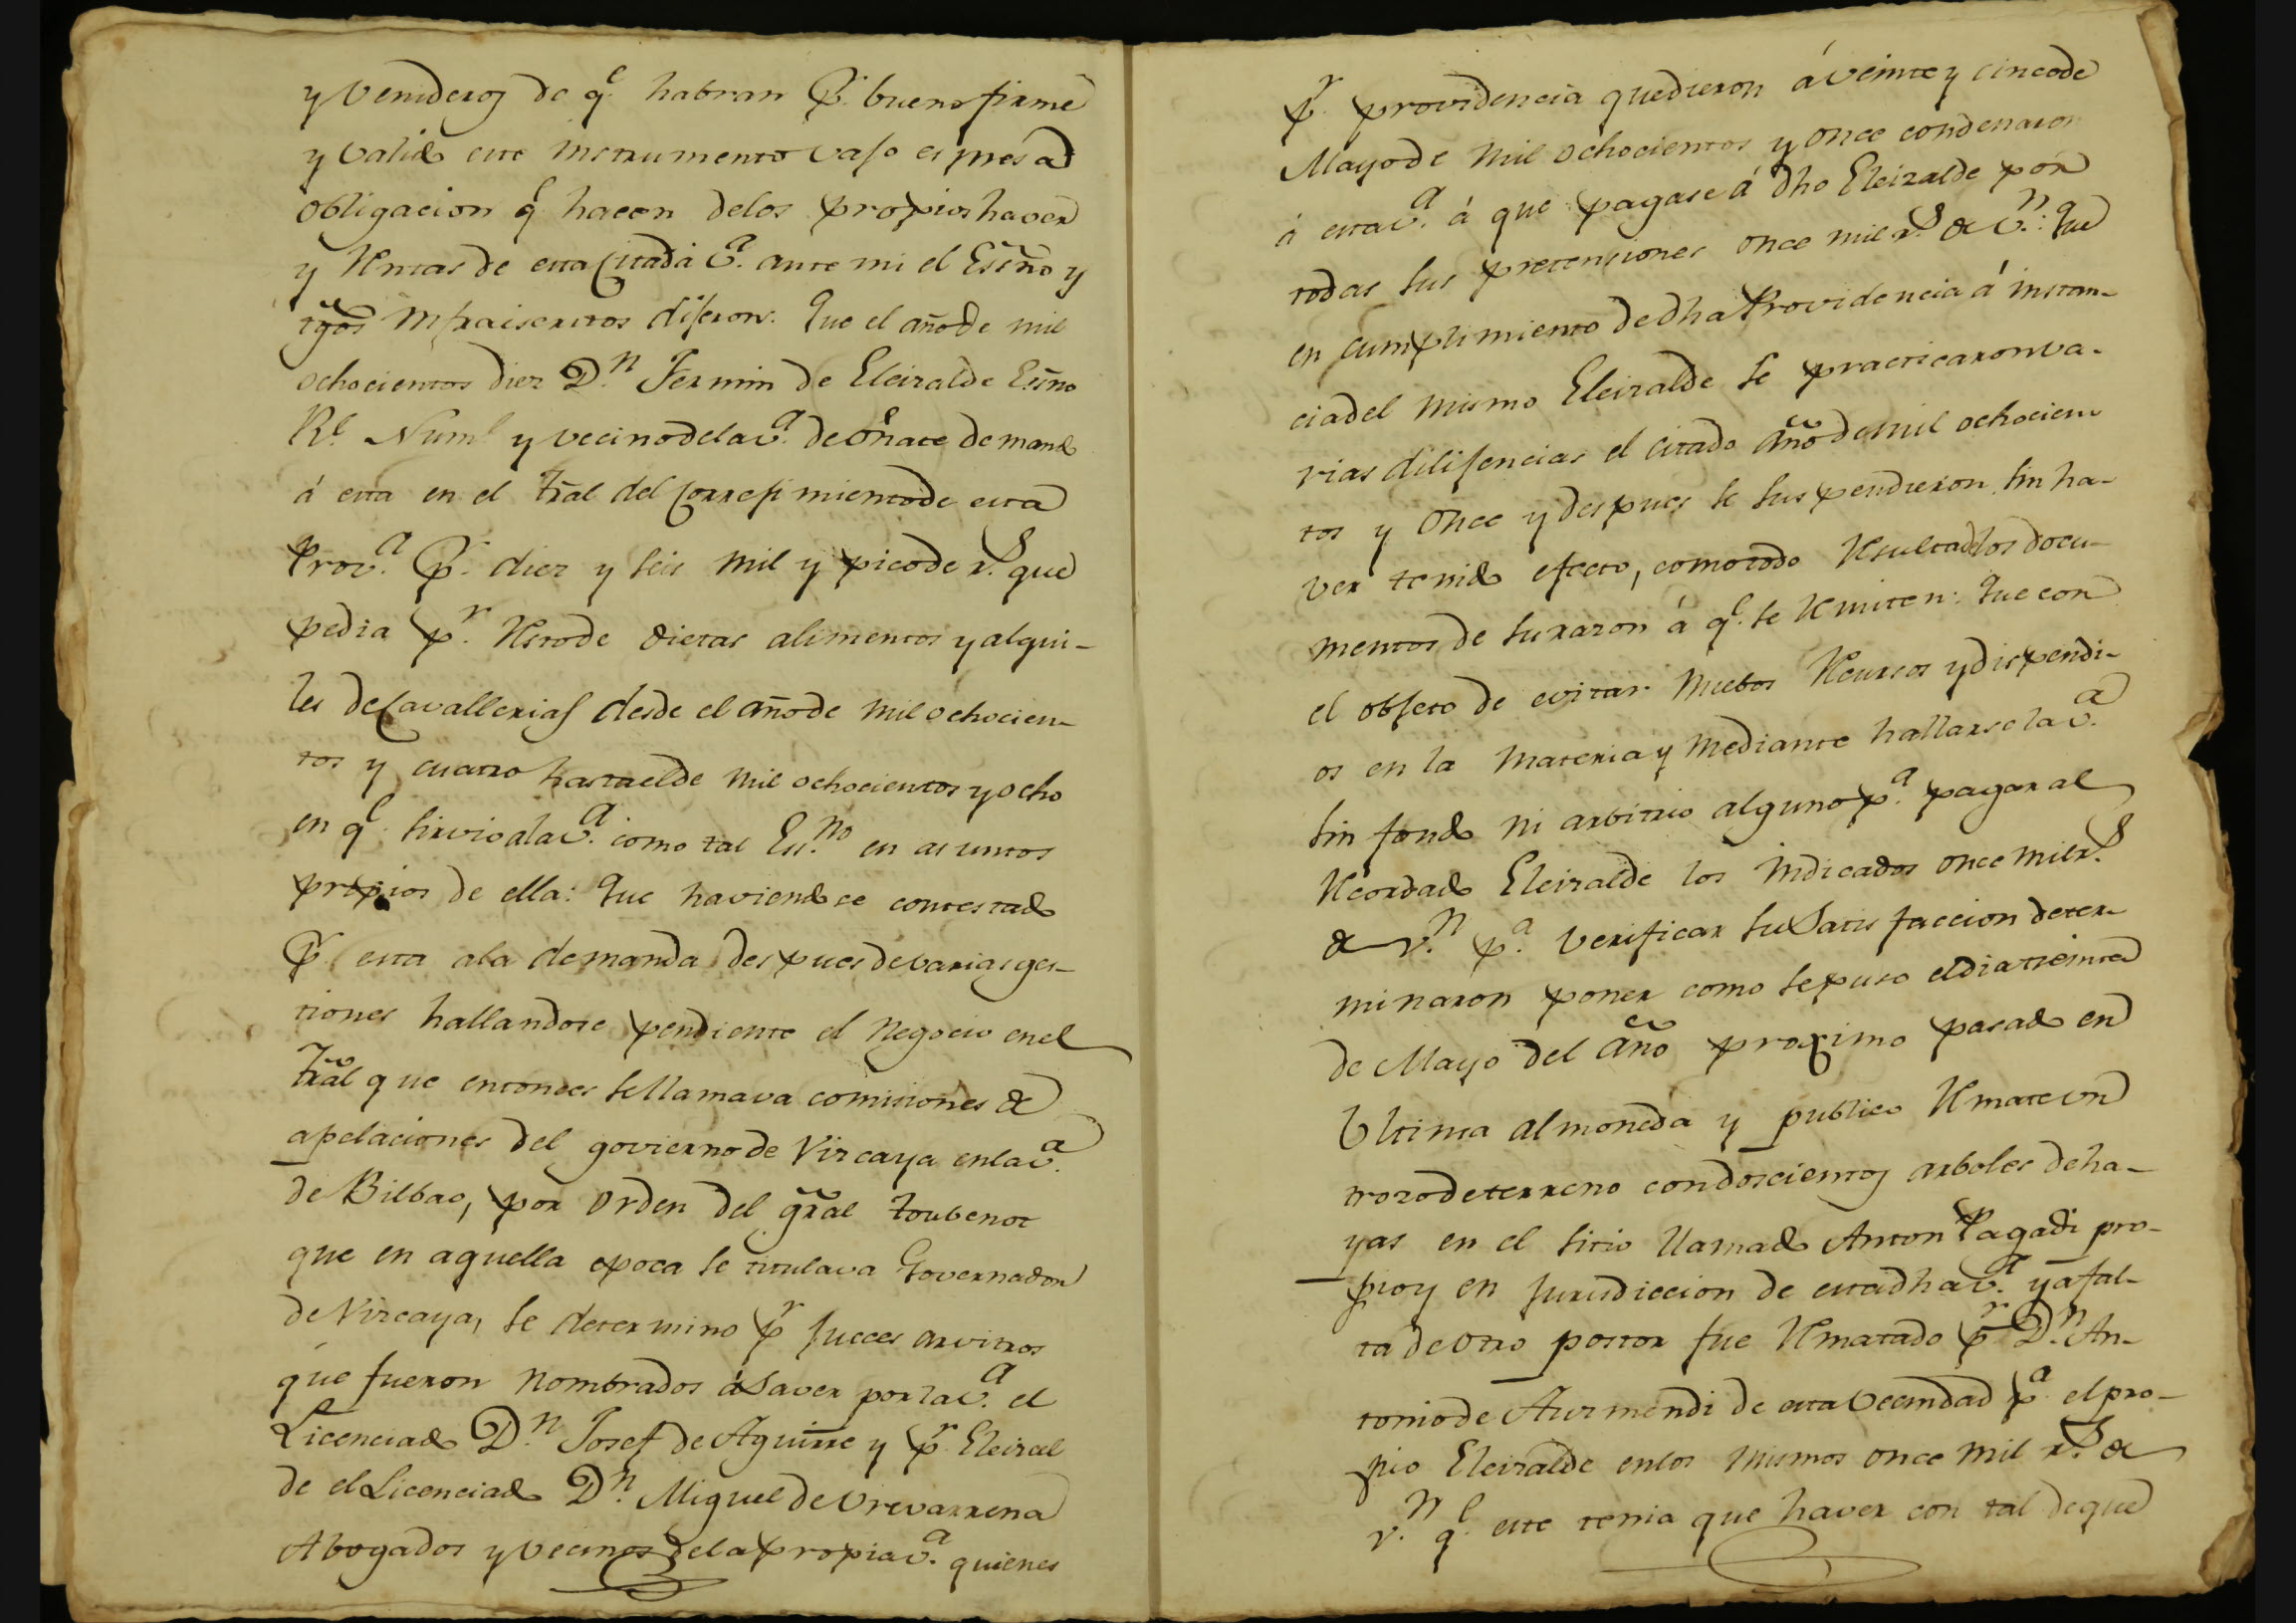 y venideros de q.e habran P.r bueno firme
y valido este instrumento vajo espresa
obligacion q.e hacen delos propios haver
y Rentas de esta Citada v.a ante mi el Essño y
tgõs infraiscritos dijeron: Que el año de mil
ochocientos diez D.n Fermin de Eleizalde Essño
R.l Num.l y vecino dela v.a de Oñate demando
á esta en el trãl del Correjimiento de esta
Prov.a P.r diez y seis mil y pico de r.s que
pedia p.r Resto de dietas alimentos y alqui-
les de Cavallerias desde el año de mil ochocien-
tos y cuatro hasta el de mil ochocientos y ocho
en q.e sirvio ala v.a como tal Ess.no en asuntos
propios de ella: Que haviendose contestado
P.r esta ala demanda despues de varias ges-
tiones hallandose pendiente el negocio en el
Trãl que entonces se llamava comisiones de
apelaciones del govierno de Vizcaya en la v.a
de Bilbao, por orden del grãl Toubenot
que en aquella epoca se titulava Governador
de Vizcaya, se determino p.r jueces arvitros
que fueron nombrados á saver por la v.a el
Licenciado D.n Josef de Aguirre y p.r Eleizal
de el Licenciado D.n Miguel de Urevarrena
Abogados y vecinos dela propia v.a quienes
p.r providencia que dieron á veinte y cinco de
Mayo de mil ochocientos y once condenaron
á esta v.a á que pagase á dho Eleizalde por
todas sus pretensiones once mil r.s de v.n: Que
en cumplimiento de dha Providencia á instan-
cia del mismo Eleizalde se practicaron va-
rias dilijencias el citado año de mil ochocien
tos y once y despues se suspendieron sin ha-
ver tenido efecto, como todo Resulta delos docu-
mentos de su razon á q.e se Remiten: Que con
el objeto de evitar nuebos Recursos y dispendi-
os en la materia y mediante hallarse la v.a
sin fondo ni arbitrio alguno p.a pagar al
Recordado Eleizalde los indicados once mil r.s
de v.n p.a verificar su satisfaccion deter-
minaron poner como se puso el dia treinta
de Mayo del año proximo pasado en
Ultima almoneda y publico Remate un
trozo de terreno con doscientos arboles de ha-
yas en el sitio llamado Anton Pagadi pro-
pio y en jurisdiccion de esta dha v.a y a fal-
ta de otro postor fue Rematado p.r D.n An-
tonio de Aurmendi de esta vecindad p.a el pro-
pio Eleizalde en los mismos once mil r.s de
v.n q.e este tenia que haver con tal de que